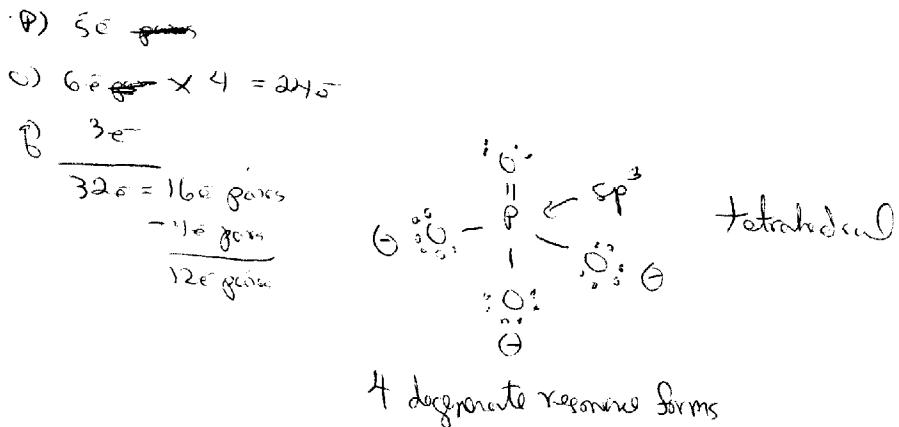 P) 5e
O) 6e × 4 = 24e
3e⁻
32e = 16e pairs
-4e pairs
12e pairs
:O:
||
⊖ :O: — P ← sp³
:O: ⊖
:O:
⊖
tetrahedral
4 degenerate resonance forms